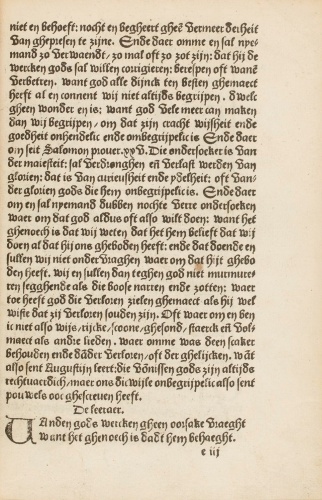 niet en behoeft: nocht en begheert gheē vermeer derheit
van ghepresen te zijne. Ende daer omme en sal nye-
mand zo verwaendt/ zo mal oft zo zot zijn: dat hij de
wercken gods sal willen corrigieren: berespen oft wanē
verbetten. want god alle dijnck ten besten ghemaect
heeft al en connent wij niet altijds begrijpen. dwelc
gheen wonder en is; want god vele meer can maken
dan wij begrijpen/ om dat zijn cracht wijsheit ende
goedheit onhendelic ende ombegrijpelic is. Ende daer
om seit Salomon prouer. xxv. Die ondersoeker is van
der maiesteit: sal verdronghen eñ verlast werden van
glorien: dat is van curieusheit ende ydelheit: oft van-
der glorien gods die hem onbegrijpelic is. Ende daer
om en sal nyemand dubben nochte verre ondersoeken
waer om dat god aldus oft also wilt doen: want het
ghenoech is dat wij weten dat het hem belieft dat wij
doen al dat hij ons gheboden heeft: ende dat doende en
sullen wij niet ondervraghen waer om dat hijt ghebo
den heeft. wij en sullen dan teghen god niet murmure-
ren segghende als die boose narren ende zotten: waer
toe heeft god die verloren zielen ghemaect als hij wel
wiste dat zij verloren souden zijn. Oft waer om en ben
ic niet also wijs/ rijcke/ scoone/ ghesond/ staerck eñ vol-
maect als andre lieden. waer omme was deen scaker
behouden ende dāder verloren/ oft der ghelijcken. wāt
also sent Augustijn leert: die vonissen gods zijn altijds
rechtuaerdich/ maer ons dicwijle onbegrijpelic also sent
pouwels ooc ghescreuen heeft.
De leeraer.
VAnden gods wercken gheen oorsake vraeght
want het ghenoech is dadt hem behaeght.
e iij